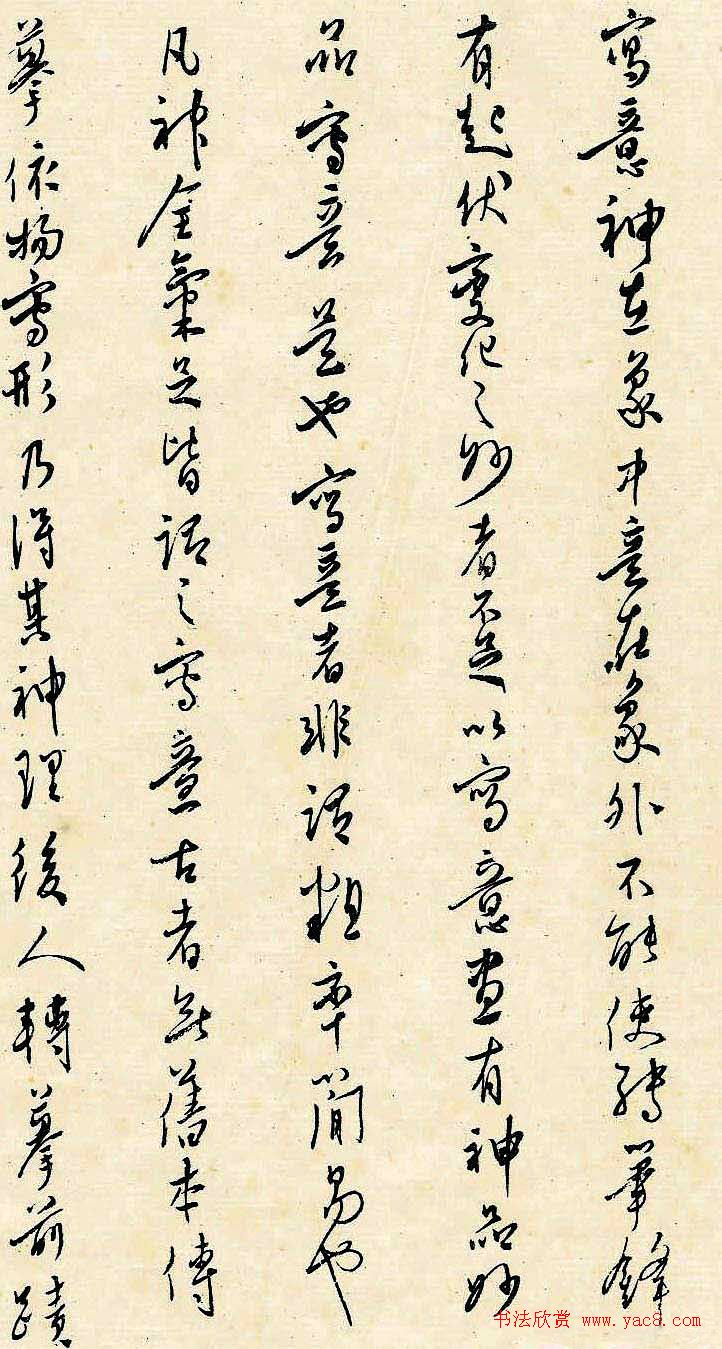 寫意神在象中意在象外不能使轉筆鋒
有起伏變化之妙者不足以寫意畫有神品妙
品寫意是也寫意者非謂粗率簡易也
凡神全氣足皆謂之寫意古者無舊本傳
摹依物寫形乃得其神理後人轉摹前蹟
书法欣赏 www.yac8.com